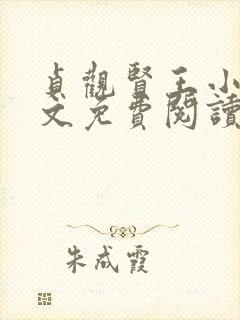 貞觀賢王小
文免費閱讀
朱成霞